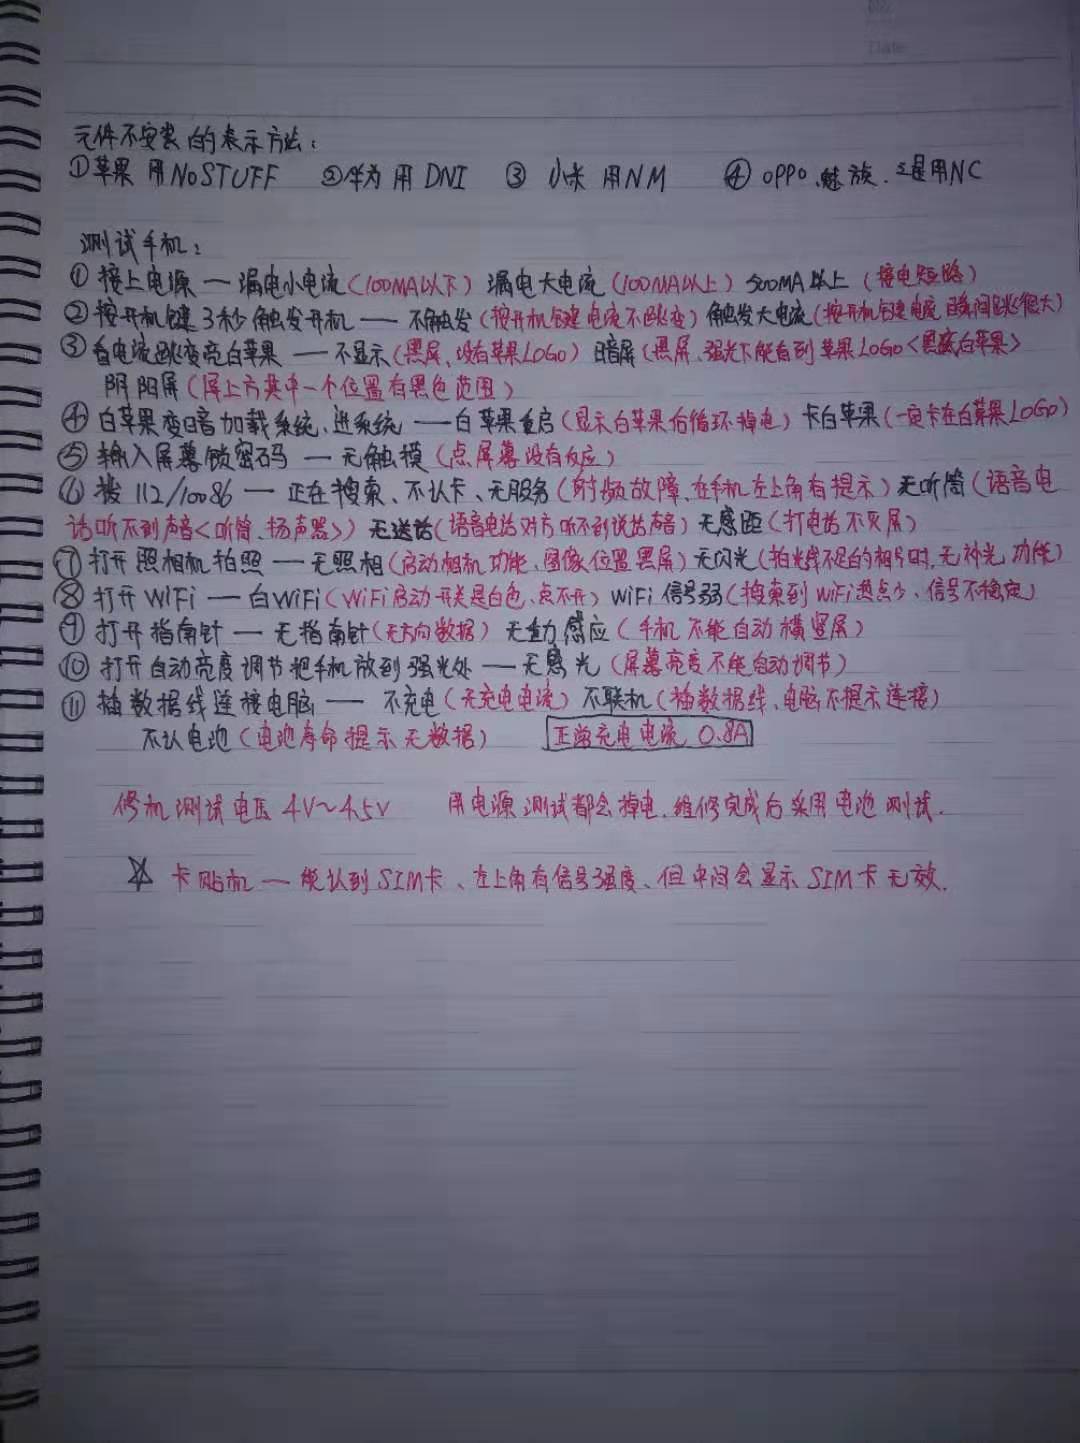 Date
元件不安装的表示方法：
①苹果 用NoSTUFF ②华为 用 DNI ③ 小米 用NM ④ OPPO、魅族、三星用NC
测试手机：
① 接上电源 — 漏电小电流（100MA以下） 漏电大电流（100MA以上）500MA以上（接电短路）
② 按开机键3秒触发开机 —— 不触发（按开机键电流不跳变）触发大电流（按开机键电流瞬间跳很大）
③ 看电流跳变亮白苹果 —— 不显示（黑屏、没有苹果LOGO） 暗屏（黑屏、强光下能看到苹果LOGO<黑底白苹果>
阴阳屏（屏上方其中一个位置有黑色范围）
④ 白苹果变暗加载系统、进系统 —— 白苹果重启（显示白苹果后循环掉电）卡白苹果（一定卡在白苹果LOGO）
⑤ 输入屏幕锁密码 — 无触摸（点屏幕没有反应）
⑥ 拨 112/10086 — 正在搜索、不认卡、无服务（射频故障、在手机左上角有提示）无听筒（语音电
话听不到声音<听筒、扬声器>）无送话（语音电话对方听不到说话声音）无感距（打电话不灭屏）
⑦ 打开照相机拍照 — 无照相（启动相机功能、图像位置黑屏）无闪光（拍光线不足的相片时,无补光功能）
⑧ 打开WIFI — 白WIFI（WIFI启动开关是白色、点不开）WIFI信号弱（搜索到WIFI热点少、信号不稳定）
⑨ 打开指南针 — 无指南针（无方向数据）无重力感应（手机不能自动横竖屏）
⑩ 打开自动亮度调节把手机放到强光处 — 无感光（屏幕亮度不能自动调节）
⑪ 插数据线连接电脑 — 不充电（无充电电流）不联机（插数据线、电脑不提示连接）
不认电池（电池寿命提示无数据） 正常充电电流 0.8A
修机测试电压 4V～4.5V 用电源测试都会掉电、维修完成后采用电池测试.
☆ 卡贴机 — 能认到SIM卡、左上角有信号强度、但中间会显示SIM卡无效.